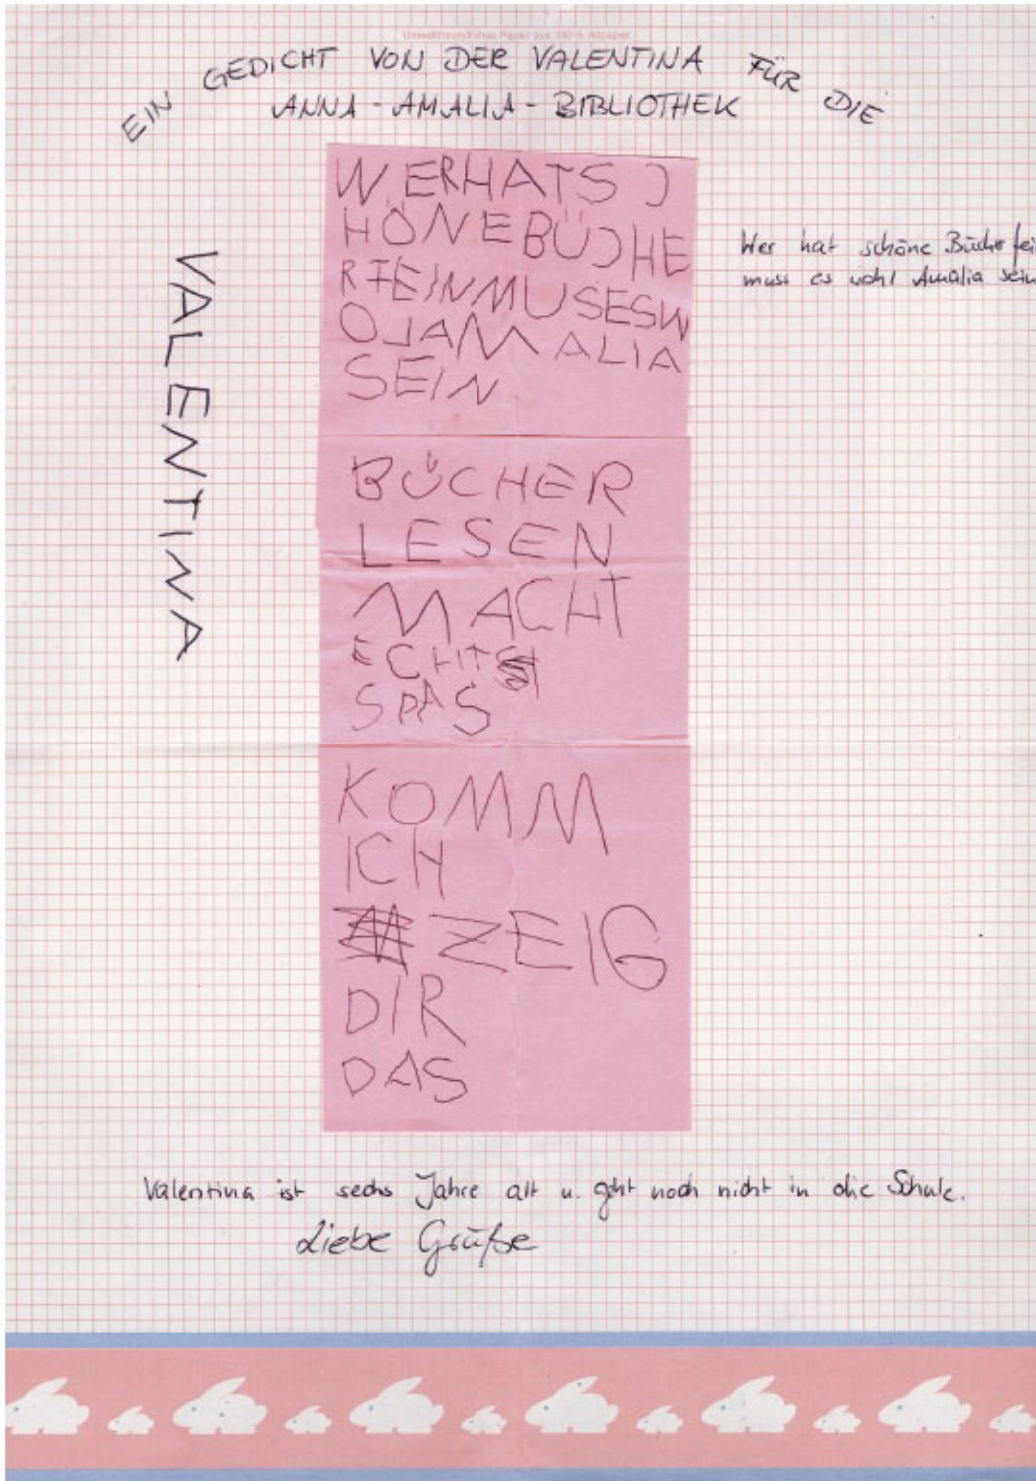 Umweltfreundliches Papier aus 100% Altpapier
EIN GEDICHT VON DER VALENTINA FÜR DIE
ANNA-AMALIA-BIBLIOTHEK
VALENTINA
WERHATSC
HÖNEBÜCHE
RFEINMUSESW
OLAMALIA
SEIN
Wer hat schöne Bücher fei
muss es wohl Amalia sein
BÜCHER
LESEN
MACHT
ECHT
SPAS
KOMM
ICH
ZEIG
DIR
DAS
Valentina ist sechs Jahre alt u. geht noch nicht in die Schule.
Liebe Grüße